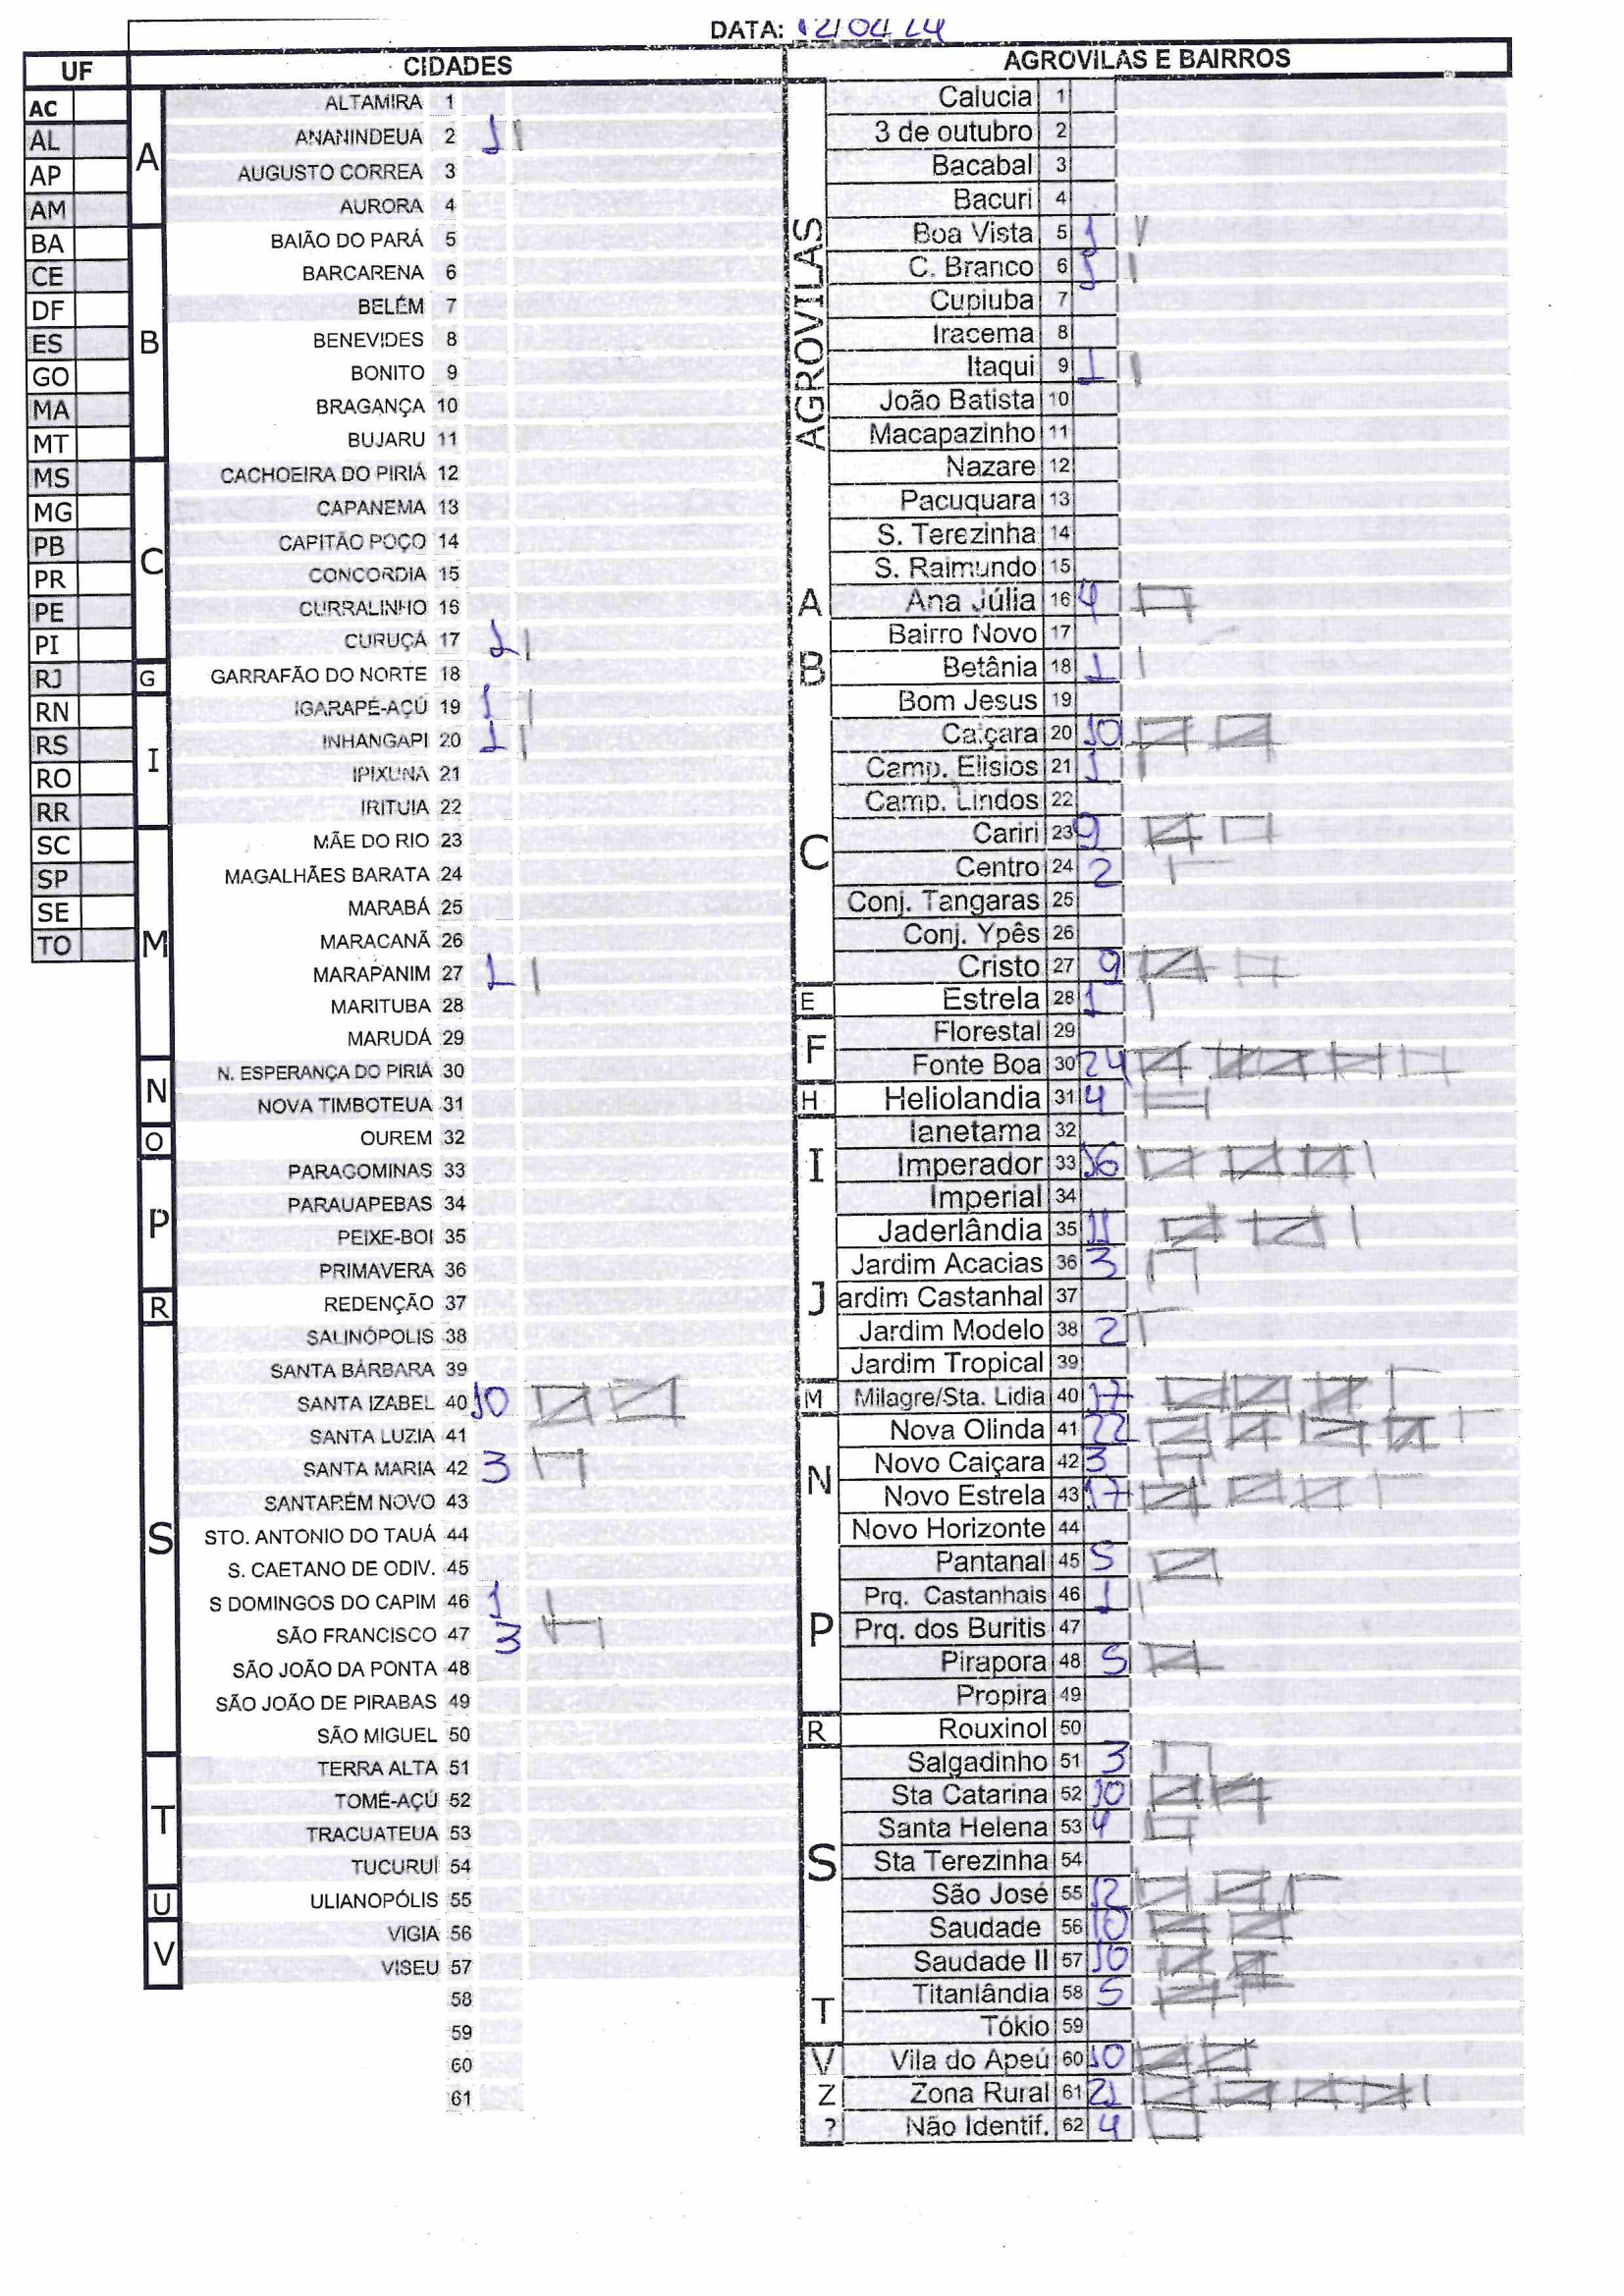 DATA: 12/04/24
UF CIDADES AGROVILAS E BAIRROS
AC
AL
AP
AM
BA
CE
DF
ES
GO
MA
MT
MS
MG
PB
PR
PE
PI
RJ
RN
RS
RO
RR
SC
SP
SE
TO
A
ALTAMIRA 1
ANANINDEUA 2 1
AUGUSTO CORREA 3
AURORA 4
B
BAIÃO DO PARÁ 5
BARCARENA 6
BELÉM 7
BENEVIDES 8
BONITO 9
BRAGANÇA 10
BUJARU 11
C
CACHOEIRA DO PIRIÁ 12
CAPANEMA 13
CAPITÃO POÇO 14
CONCORDIA 15
CURRALINHO 16
CURUÇÁ 17 1
G
GARRAFÃO DO NORTE 18
I
IGARAPÉ-AÇÚ 19 1
INHANGAPI 20 1
IPIXUNA 21
IRITUIA 22
M
MÃE DO RIO 23
MAGALHÃES BARATA 24
MARABÁ 25
MARACANÃ 26
MARAPANIM 27 1
MARITUBA 28
MARUDÁ 29
N
N. ESPERANÇA DO PIRIÁ 30
NOVA TIMBOTEUA 31
O
OUREM 32
P
PARAGOMINAS 33
PARAUAPEBAS 34
PEIXE-BOI 35
PRIMAVERA 36
R
REDENÇÃO 37
S
SALINÓPOLIS 38
SANTA BÁRBARA 39
SANTA IZABEL 40 10
SANTA LUZIA 41
SANTA MARIA 42 3
SANTARÉM NOVO 43
STO. ANTONIO DO TAUÁ 44
S. CAETANO DE ODIV. 45
S DOMINGOS DO CAPIM 46 1
SÃO FRANCISCO 47 3
SÃO JOÃO DA PONTA 48
SÃO JOÃO DE PIRABAS 49
SÃO MIGUEL 50
T
TERRA ALTA 51
TOMÉ-AÇÚ 52
TRACUATEUA 53
TUCURUÍ 54
U
ULIANOPÓLIS 55
V
VIGIA 56
VISEU 57
58
59
60
61
AGROVILAS
Calucia 1
3 de outubro 2
Bacabal 3
Bacuri 4
Boa Vista 5 1
C. Branco 6 1
Cupiuba 7
Iracema 8
Itaqui 9 1
João Batista 10
Macapazinho 11
Nazare 12
Pacuquara 13
S. Terezinha 14
S. Raimundo 15
A
Ana Júlia 16 4
B
Bairro Novo 17
Betânia 18 1
Bom Jesus 19
C
Caiçara 20 10
Camp. Elisios 21 1
Camp. Lindos 22
Cariri 23 9
Centro 24 2
Conj. Tangaras 25
Conj. Ypês 26
Cristo 27 9
E
Estrela 28 1
F
Florestal 29
Fonte Boa 30 24
H
Heliolandia 31 4
I
Ianetama 32
Imperador 33 16
Imperial 34
J
Jaderlândia 35 11
Jardim Acacias 36 3
ardim Castanhal 37
Jardim Modelo 38 2
Jardim Tropical 39
M
Milagre/Sta. Lidia 40 17
N
Nova Olinda 41 22
Novo Caiçara 42 3
Novo Estrela 43 17
Novo Horizonte 44
P
Pantanal 45 5
Prq. Castanhais 46 1
Prq. dos Buritis 47
Pirapora 48 5
Propira 49
R
Rouxinol 50
S
Salgadinho 51 3
Sta Catarina 52 10
Santa Helena 53 4
Sta Terezinha 54
São José 55 12
Saudade 56 10
Saudade II 57 10
T
Titanlândia 58 5
Tókio 59
V
Vila do Apeú 60 10
Z
Zona Rural 61 21
?
Não Identif. 62 4